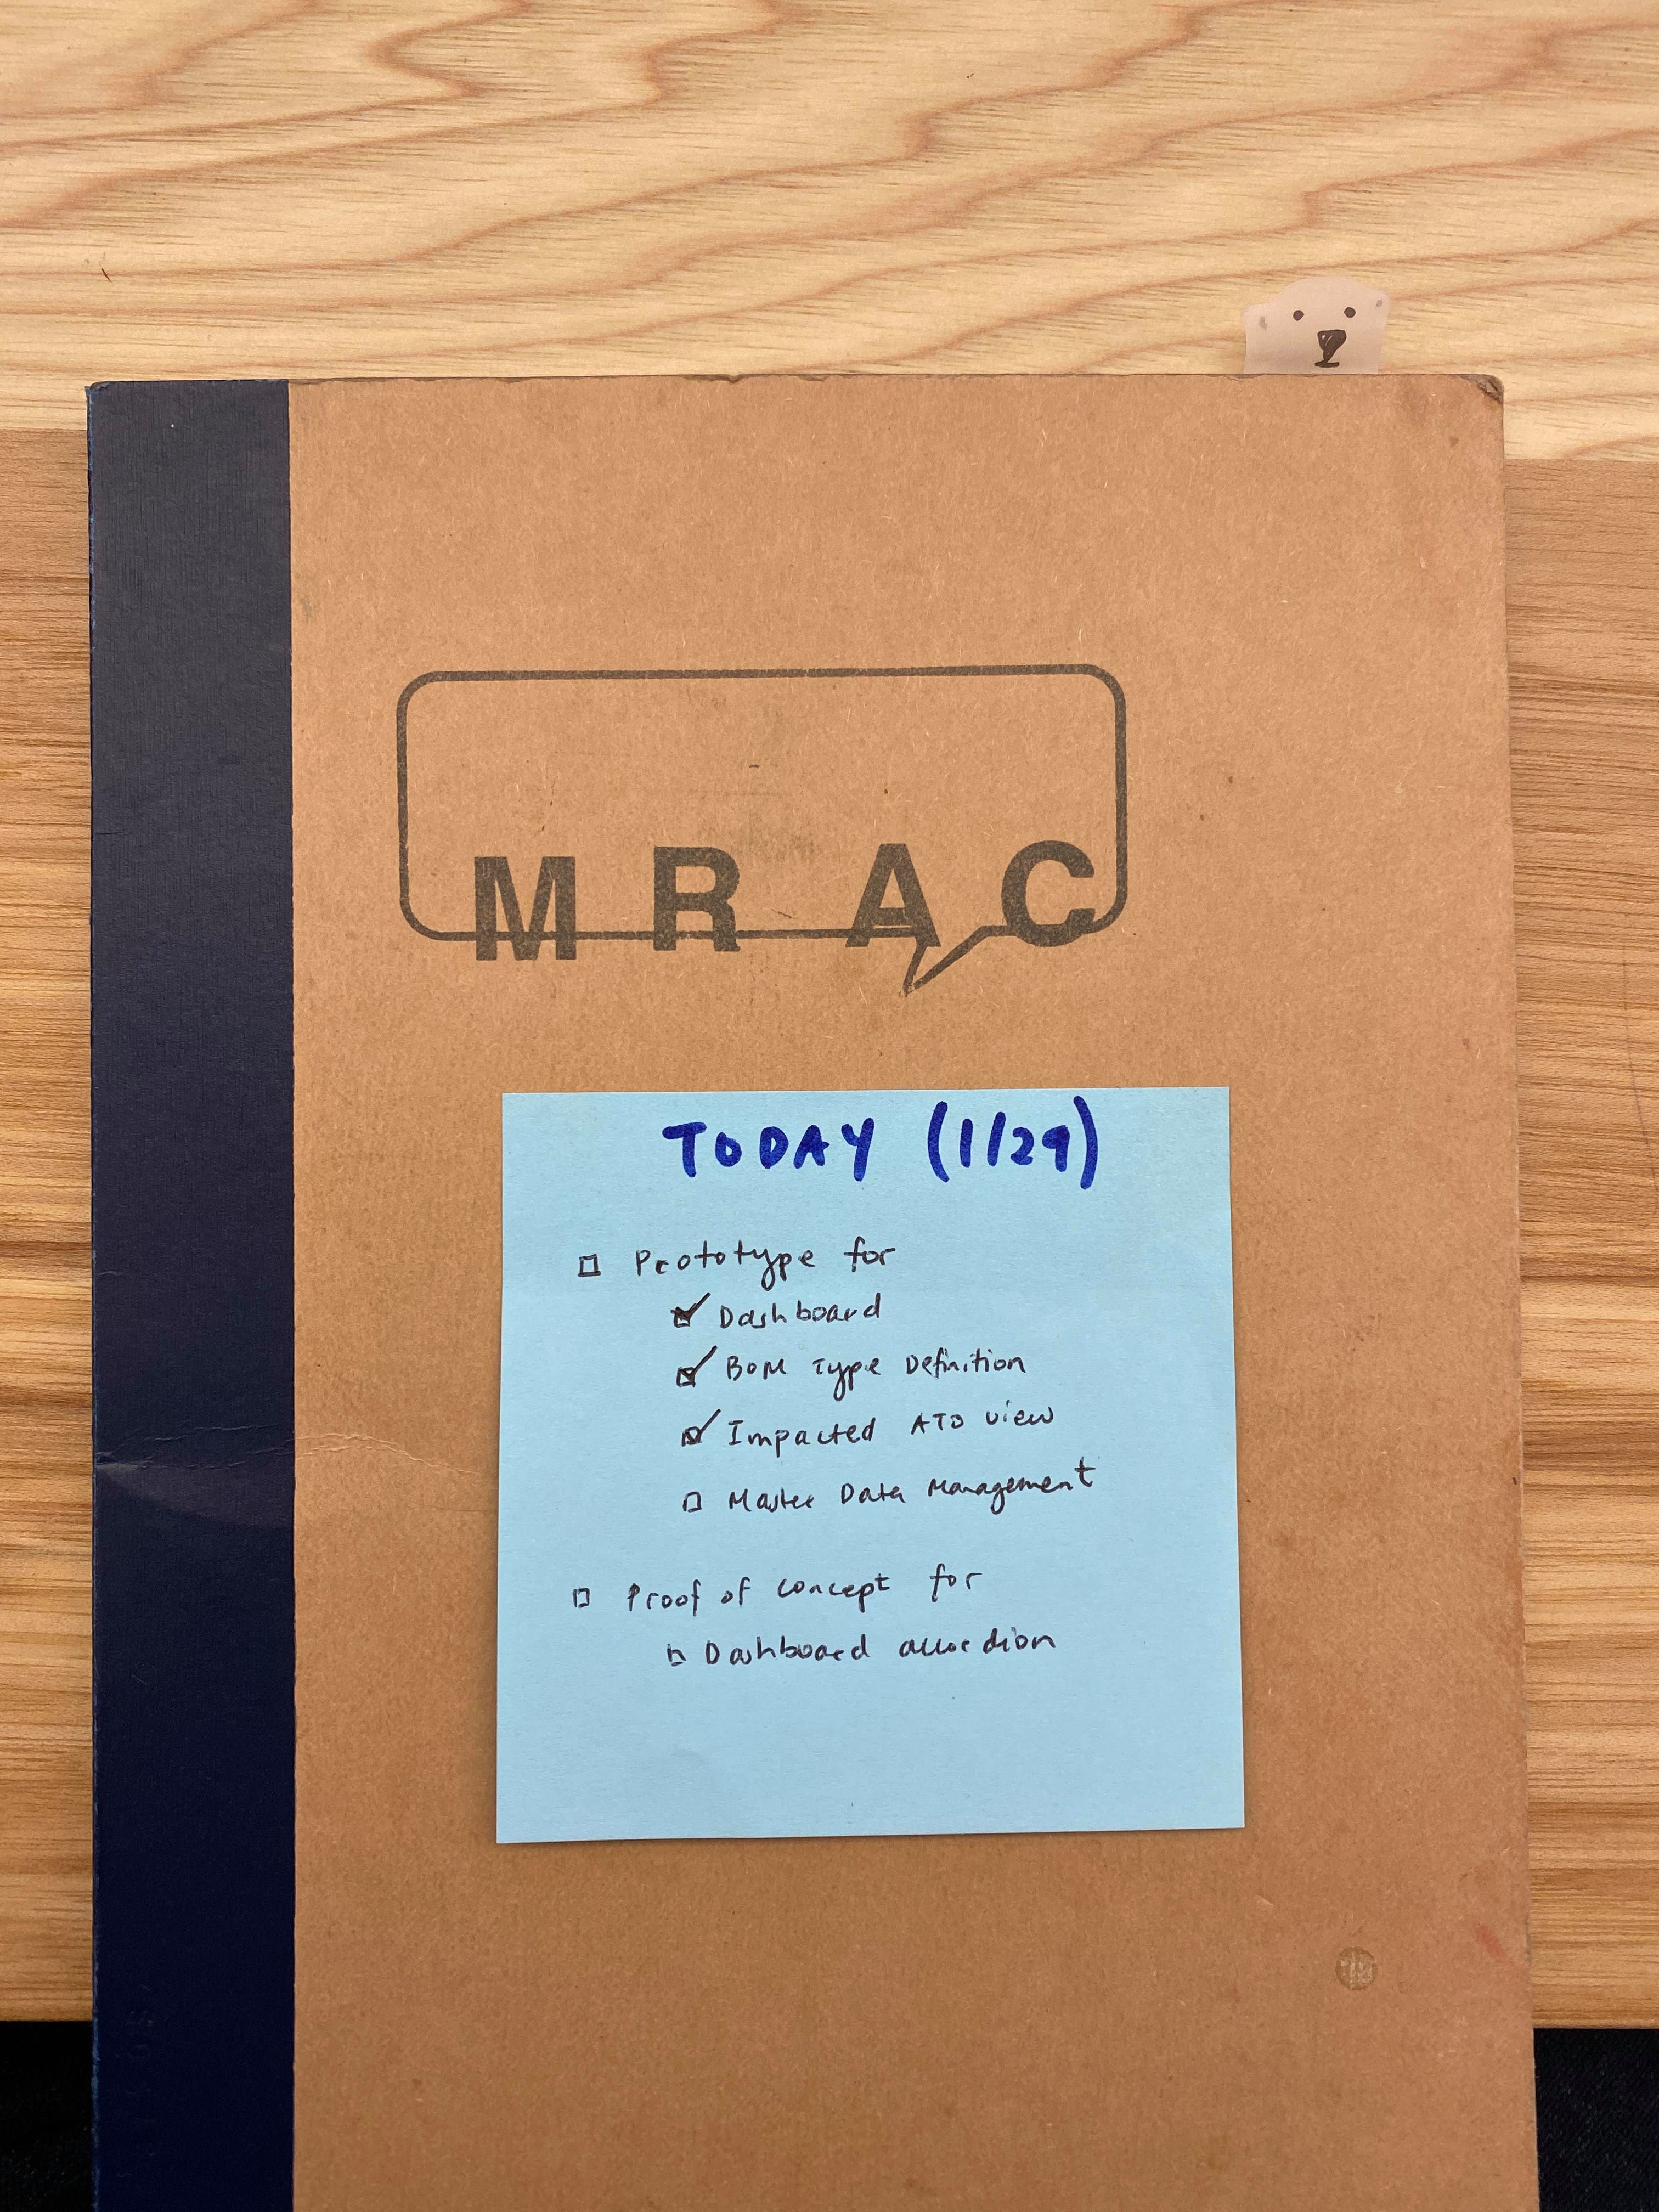 M R A C
TODAY (1/29)
Prototype for
Dashboard
BOM Type Definition
Impacted ATO view
Master Data Management
Proof of concept for
Dashboard accordion